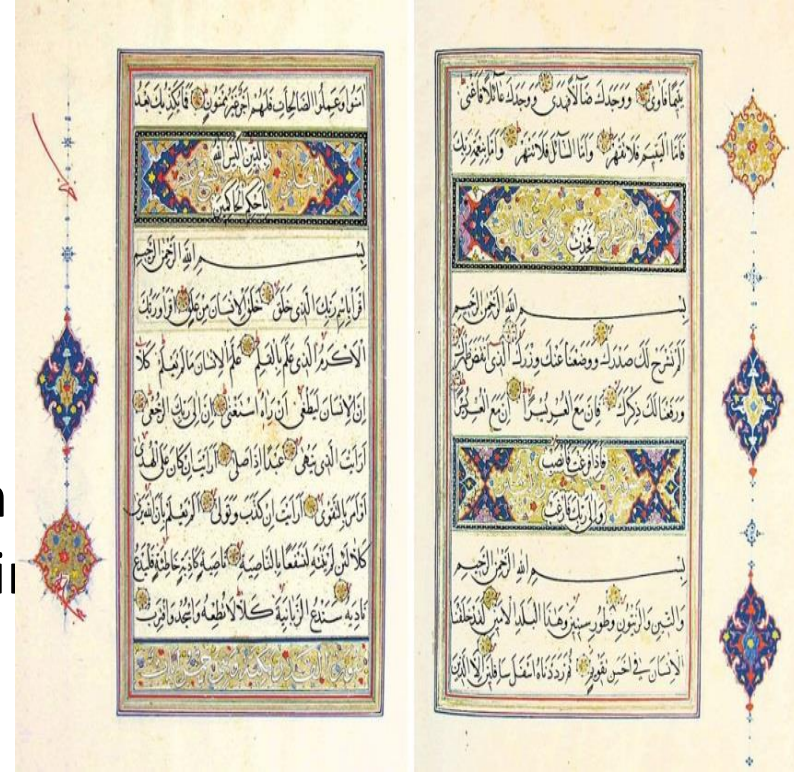 يَتِيمًا فَاٰوى وَوَجَدَكَ ضَآلًّا فَهَدى وَوَجَدَكَ عَائِلًا فَاَغْنى
فَاَمَّا الْيَتِيمَ فَلَا تَقْهَرْ وَاَمَّا السَّآئِلَ فَلَا تَنْهَرْ وَاَمَّا بِنِعْمَةِ رَبِّكَ
فَحَدِّثْ
بِسْمِ اللهِ الرَّحْمٰنِ الرَّحِيمِ
اَلَمْ نَشْرَحْ لَكَ صَدْرَكَ وَوَضَعْنَا عَنْكَ وِزْرَكَ الَّذِى اَنْقَضَ ظَهْرَكَ
وَرَفَعْنَا لَكَ ذِكْرَكَ فَاِنَّ مَعَ الْعُسْرِ يُسْرًا اِنَّ مَعَ الْعُسْرِ يُسْرًا
فَاِذَا فَرَغْتَ فَانْصَبْ
وَاِلٰى رَبِّكَ فَارْغَبْ
بِسْمِ اللهِ الرَّحْمٰنِ الرَّحِيمِ
وَالتِّينِ وَالزَّيْتُونِ وَطُورِ سِينِينَ وَهٰذَا الْبَلَدِ الْاَمِينِ لَقَدْ خَلَقْنَا
الْاِنْسَانَ فِى اَحْسَنِ تَقْوِيمٍ ثُمَّ رَدَدْنَاهُ اَسْفَلَ سَافِلِينَ اِلَّا الَّذِينَ
اٰمَنُوا وَعَمِلُوا الصَّالِحَاتِ فَلَهُمْ اَجْرٌ غَيْرُ مَمْنُونٍ فَمَا يُكَذِّبُكَ بَعْدُ
بِالدِّينِ اَلَيْسَ اللهُ
بِاَحْكَمِ الْحَاكِمِينَ
بِسْمِ اللهِ الرَّحْمٰنِ الرَّحِيمِ
اِقْرَأْ بِاسْمِ رَبِّكَ الَّذِى خَلَقَ خَلَقَ الْاِنْسَانَ مِنْ عَلَقٍ اِقْرَأْ وَرَبُّكَ
الْاَكْرَمُ الَّذِى عَلَّمَ بِالْقَلَمِ عَلَّمَ الْاِنْسَانَ مَا لَمْ يَعْلَمْ كَلَّا
اِنَّ الْاِنْسَانَ لَيَطْغٰى اَنْ رَاٰهُ اسْتَغْنٰى اِنَّ اِلٰى رَبِّكَ الرُّجْعٰى
اَرَاَيْتَ الَّذِى يَنْهٰى عَبْدًا اِذَا صَلّٰى اَرَاَيْتَ اِنْ كَانَ عَلَى الْهُدٰى
اَوْ اَمَرَ بِالتَّقْوٰى اَرَاَيْتَ اِنْ كَذَّبَ وَتَوَلّٰى اَلَمْ يَعْلَمْ بِاَنَّ اللهَ يَرٰى
كَلَّا لَئِنْ لَمْ يَنْتَهِ لَنَسْفَعًا بِالنَّاصِيَةِ نَاصِيَةٍ كَاذِبَةٍ خَاطِئَةٍ فَلْيَدْعُ
نَادِيَهُ سَنَدْعُ الزَّبَانِيَةَ كَلَّا لَا تُطِعْهُ وَاسْجُدْ وَاقْتَرِبْ